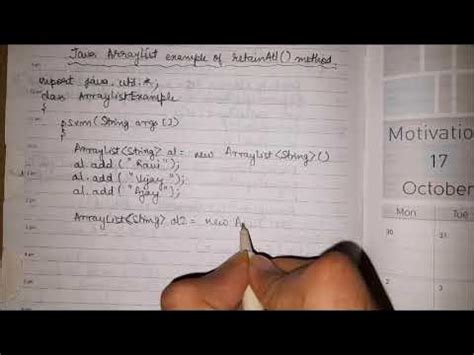 Java ArrayList example of retainAll() method.
import java.util.*;
class ArrayListExample
{
psvm(String args[])
{
ArrayList<String> al = new ArrayList<String>()
al.add("Ravi");
al.add("Vijay");
al.add("Ajay");
ArrayList<String> al2 = new A
Motivatio
17
October
Mon Tue
30